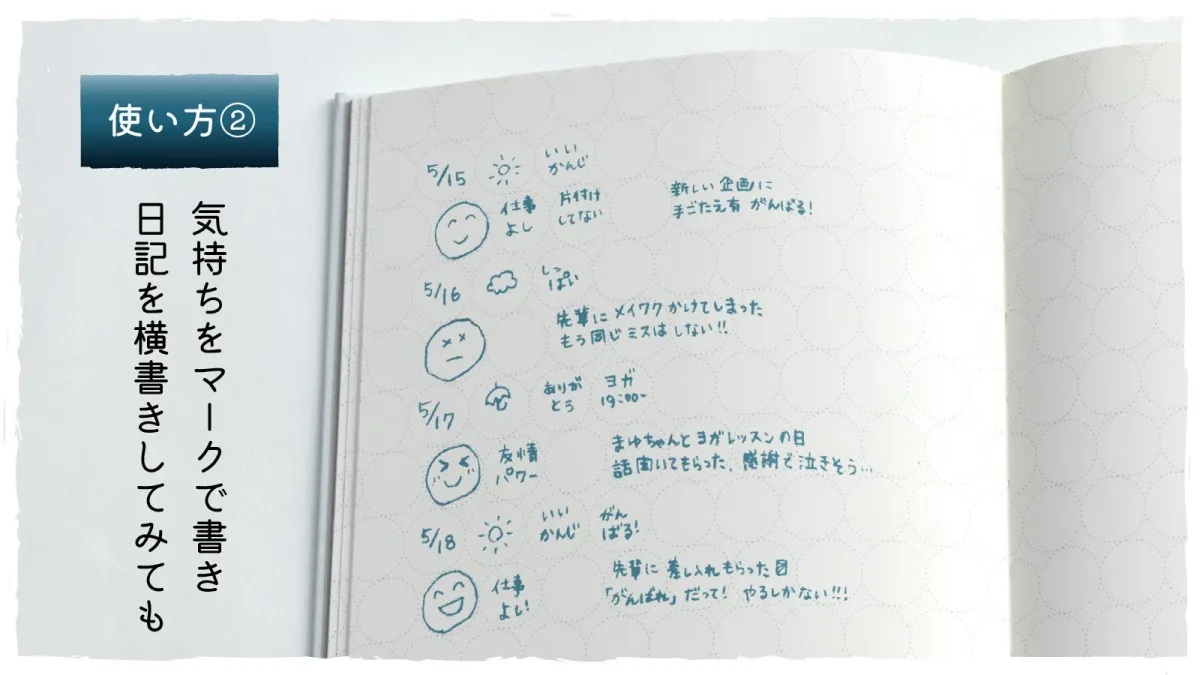 使い方②
気持ちをマークで書き
日記を横書きしてみても
5/15
いい
かんじ
仕事
よし
片付け
してない
新しい企画に
手ごたえ有 がんばる!
5/16
しっ
ぱい
先輩にメイワクかけてしまった
もう同じミスはしない!!
5/17
ありが
とう
ヨガ
19:00~
友情
パワー
まゆちゃんとヨガレッスンの日
話聞いてもらった、感謝で泣きそう…
5/18
いい
かんじ
がん
ばる!
仕事
よし!
先輩に差し入れもらった
「がんばれ」だって! やるしかない!!!